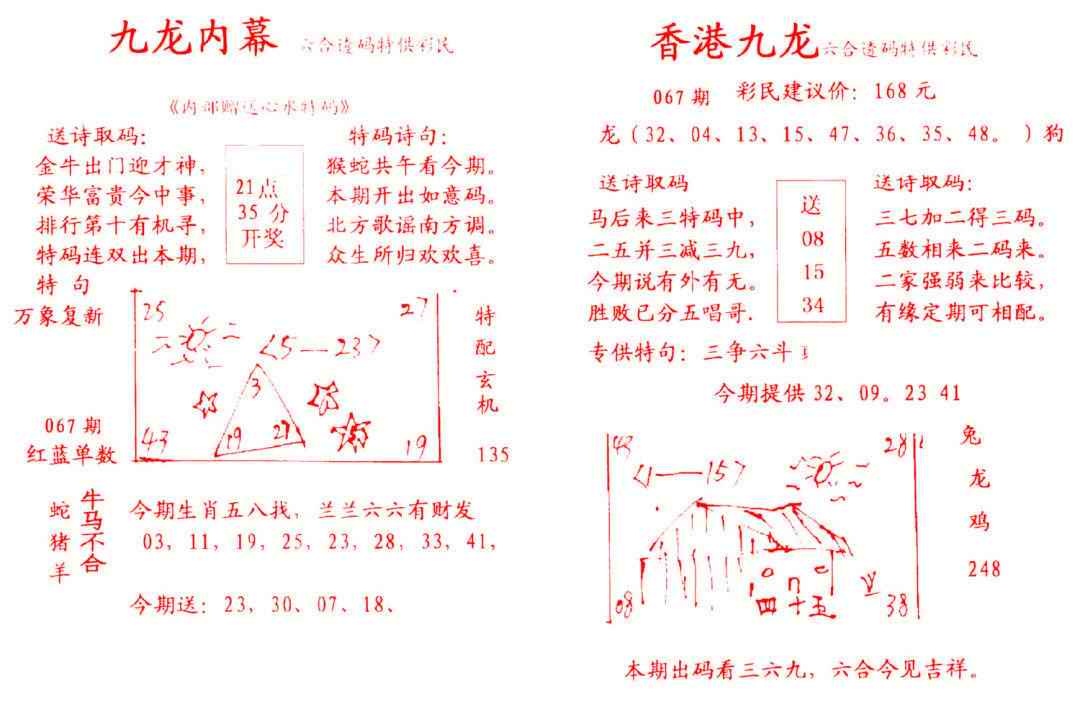 九龙内幕 六合透码特供彩民
《内部赠送心水特码》
送诗取码:
金牛出门迎才神,
荣华富贵今中事,
排行第十有机寻,
特码连双出本期,
特 句
万象复新
21点
35 分
开奖
特码诗句:
猴蛇共午看今期。
本期开出如意码。
北方歌谣南方调。
众生所归欢欢喜。
25
27
<5—23>
3
19
21
43
19
特
配
玄
机
135
067 期
红蓝单数
蛇
猪
羊
牛
马
不
合
今期生肖五八找, 兰兰六六有财发
03, 11, 19, 25, 23, 28, 33, 41,
今期送: 23, 30、07、18、
香港九龙 六合透码特供彩民
067 期 彩民建议价: 168 元
龙 (32、04、13、15、47、36、35、48。) 狗
送诗取码
马后来三特码中,
二五并三减三九,
今期说有外有无。
胜败已分五唱哥.
送
08
15
34
送诗取码:
三七加二得三码。
五数相来二码来。
二家强弱来比较,
有缘定期可相配。
专供特句: 三争六斗
今期提供 32、09。23 41
28
<1——15>
四十五
08
38
兔
龙
鸡
248
本期出码看三六九, 六合今见吉祥。